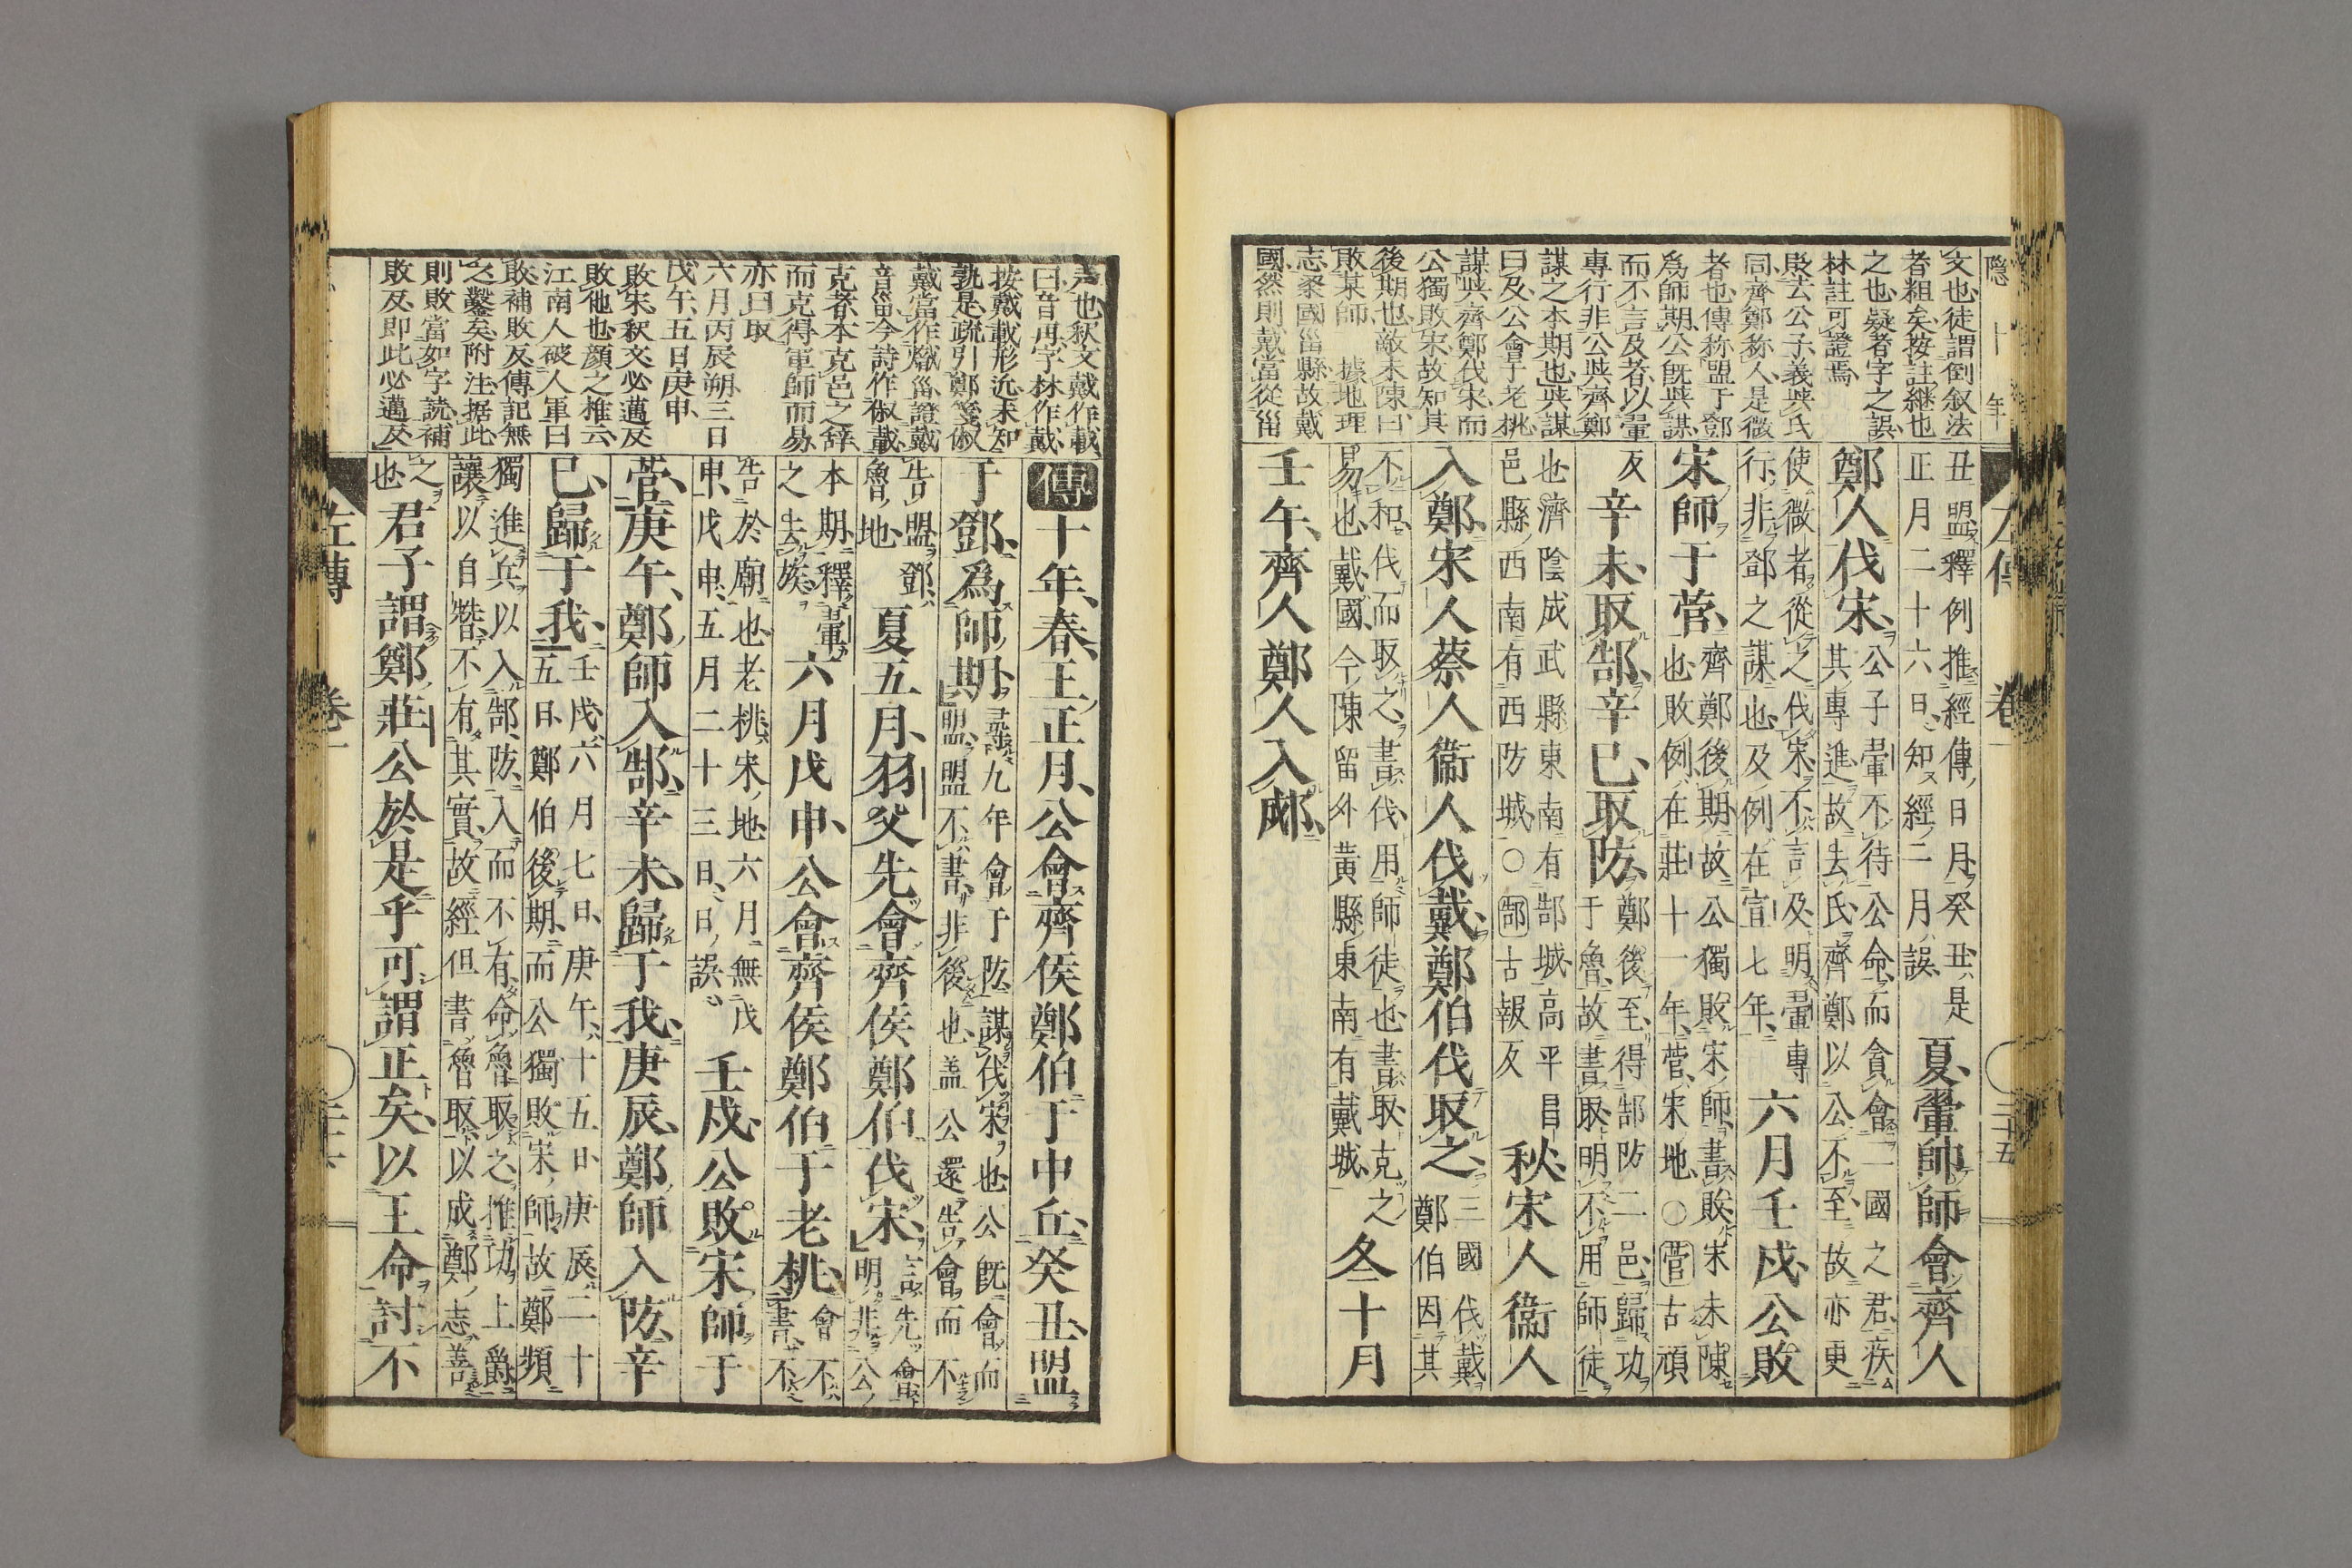 隠十年
左傳
卷一
三十五
文也徒謂倒叙法
者粗矣按註継也
之也疑者字之誤
林註可證焉
敗去公子義與氏
同齊鄭称人是微
者也傳称盟于鄧
爲師期公旣與謀
而不言及者以翬
專行非公與齊鄭
謀之本期也與謀
曰及公會于老桃
謀與齊鄭伐宋而
公獨敗宋故知其
後期也敵未陳曰
敗某師 據地理
志梁國甾縣故戴
國然則戴當從甾
丑盟釋例推經傳日月癸丑是
正月二十六日知經二月誤
夏翬帥師會齊人
鄭人伐宋
公子翬不待公命而貪會二國之君疾
其專進故去氏齊鄭以公不至故亦更
使微者從之伐宋不言及明翬專
行非鄧之謀也及例在宣七年
六月壬戌公敗
宋師于菅
齊鄭後期故公獨敗宋師書敗宋未陳
也敗例在莊十一年菅宋地○菅古頑
反
辛未取郜辛巳取防
鄭後至得郜防二邑歸功
于魯故書取明不用師徒
也濟陰成武縣東南有郜城高平昌
邑縣西南有西防城○郜古報反
秋宋人衞人
入鄭宋人蔡人衞人伐戴鄭伯伐取之
三國伐戴
鄭伯因其
不和伐而取之書伐用師徒也書取克之
易也戴國今陳留外黃縣東南有戴城
冬十月
壬午齊人鄭人入郕
声也釈文戴作載
曰音再字林作戴
按戴載形近未知
孰是疏引鄭箋俶
載當作熾甾證戴
音甾今詩作俶載
克者本克邑之辞
而克得軍師而易
亦曰取
六月丙辰朔三日
戊午五日庚申
敗宋釈文必邁反
敗他也顔之推云
江南人破人軍曰
敗補敗反傳記無
之鑿矣附注据此
則敗當如字読補
敗反即此必邁反
傳十年春王正月公會齊侯鄭伯于中丘癸丑盟
于鄧爲師期
尋九年會于防謀伐宋也公旣會而
盟盟不書非後也盖公還告會而不
告盟鄧
魯地
夏五月羽父先會齊侯鄭伯伐宋
言先會
明非公
本期釋翬
之去族
六月戊申公會齊侯鄭伯于老桃
會不
書不
告於廟也老桃宋地六月無戊
申戊申五月二十三日日誤
壬戌公敗宋師于
菅庚午鄭師入郜辛未歸于我庚辰鄭師入防辛
巳歸于我
壬戌六月七日庚午十五日庚辰二十
五日鄭伯後期而公獨敗宋師故鄭頻
獨進兵以入郜防入而不有命魯取之推功上爵
讓以自替不有其實故經但書魯取以成鄭志善
之
也
君子謂鄭莊公於是乎可謂正矣以王命討不
左傳
卷一